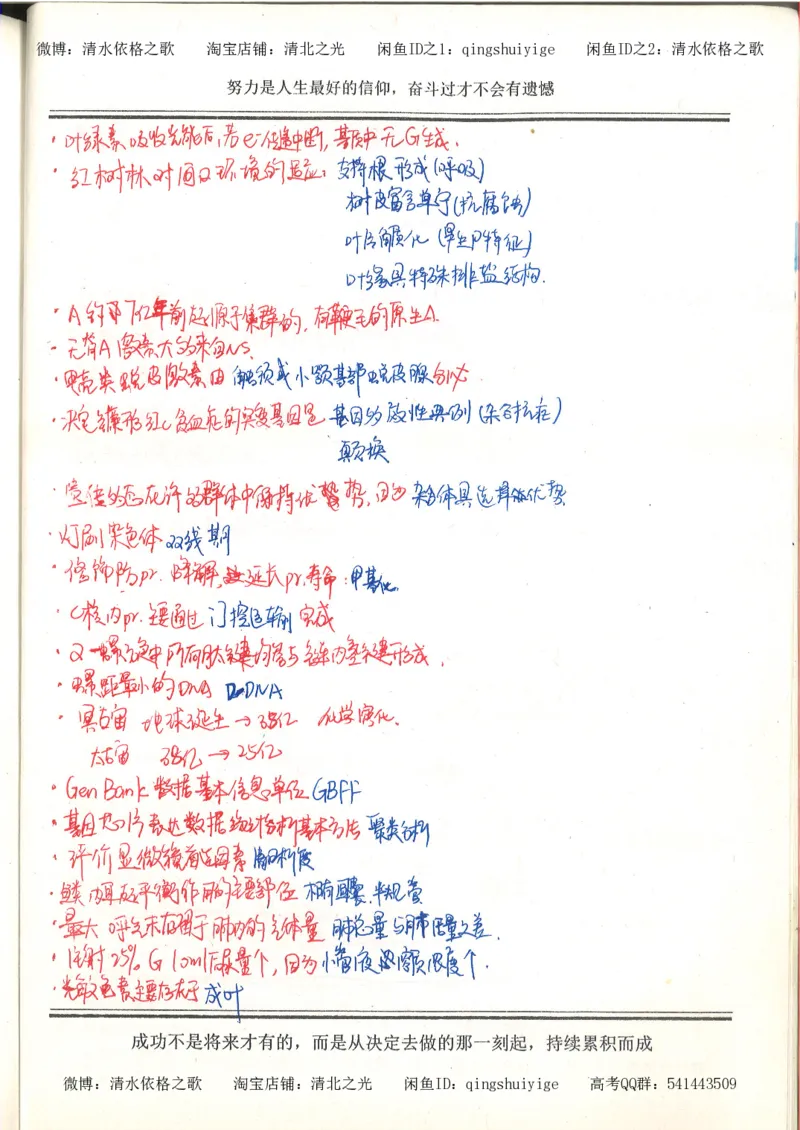 微博：清水依格之歌 淘宝店铺：清北之光 闲鱼ID之1：qingshuiyige 闲鱼ID之2：清水依格之歌
努力是人生最好的信仰，奋斗过才不会有遗憾
·叶绿素吸收光能后,若e-传递中断,基质中无G生成.
·红树林对河口环境的适应：支持根形成(呼吸)
树皮富含单宁(抗腐蚀)
叶片角质化(旱生P特征)
叶缘具特殊排盐结构.
·A约于7亿年前起源于集群的,有鞭毛的原生A.
-无脊A激素大多来自NS.
·甲壳类蜕皮激素由触须或小颚基部蜕皮腺分泌
·决定镰形红C贫血症的突变基因是 基因多效性典例(杂合抗疟)
颠换
·等位多态在许多群体中保持优势,因为杂合体具选择优势
·灯刷染色体 双线期
·修饰防pr.降解,延长pr.寿命:甲基化.
·C核内pr.主要通过门控运输完成
·α-螺旋中所有肽键均参与链内氢键形成.
·螺距最小的DNA DNA
·冥古宙 地球诞生→38亿 化学演化.
太古宙 38亿→25亿
·GenBank数据基本信息单位GBFF
·基因芯片表达数据分析基本方法 聚类分析
·评价显微镜首要因素 解析度
·鱼类内耳起平衡作用的主要部位 椭圆囊.半规管
·最大呼气末存留于肺内的气体量 肺总量与肺活量之差.
·注射25% G 10ml后尿量个,因为小管液 个.
·光敏色素主要存在于 成叶
成功不是将来才有的，而是从决定去做的那一刻起，持续累积而成
微博：清水依格之歌 淘宝店铺：清北之光 闲鱼ID：qingshuiyige 高考QQ群：541443509